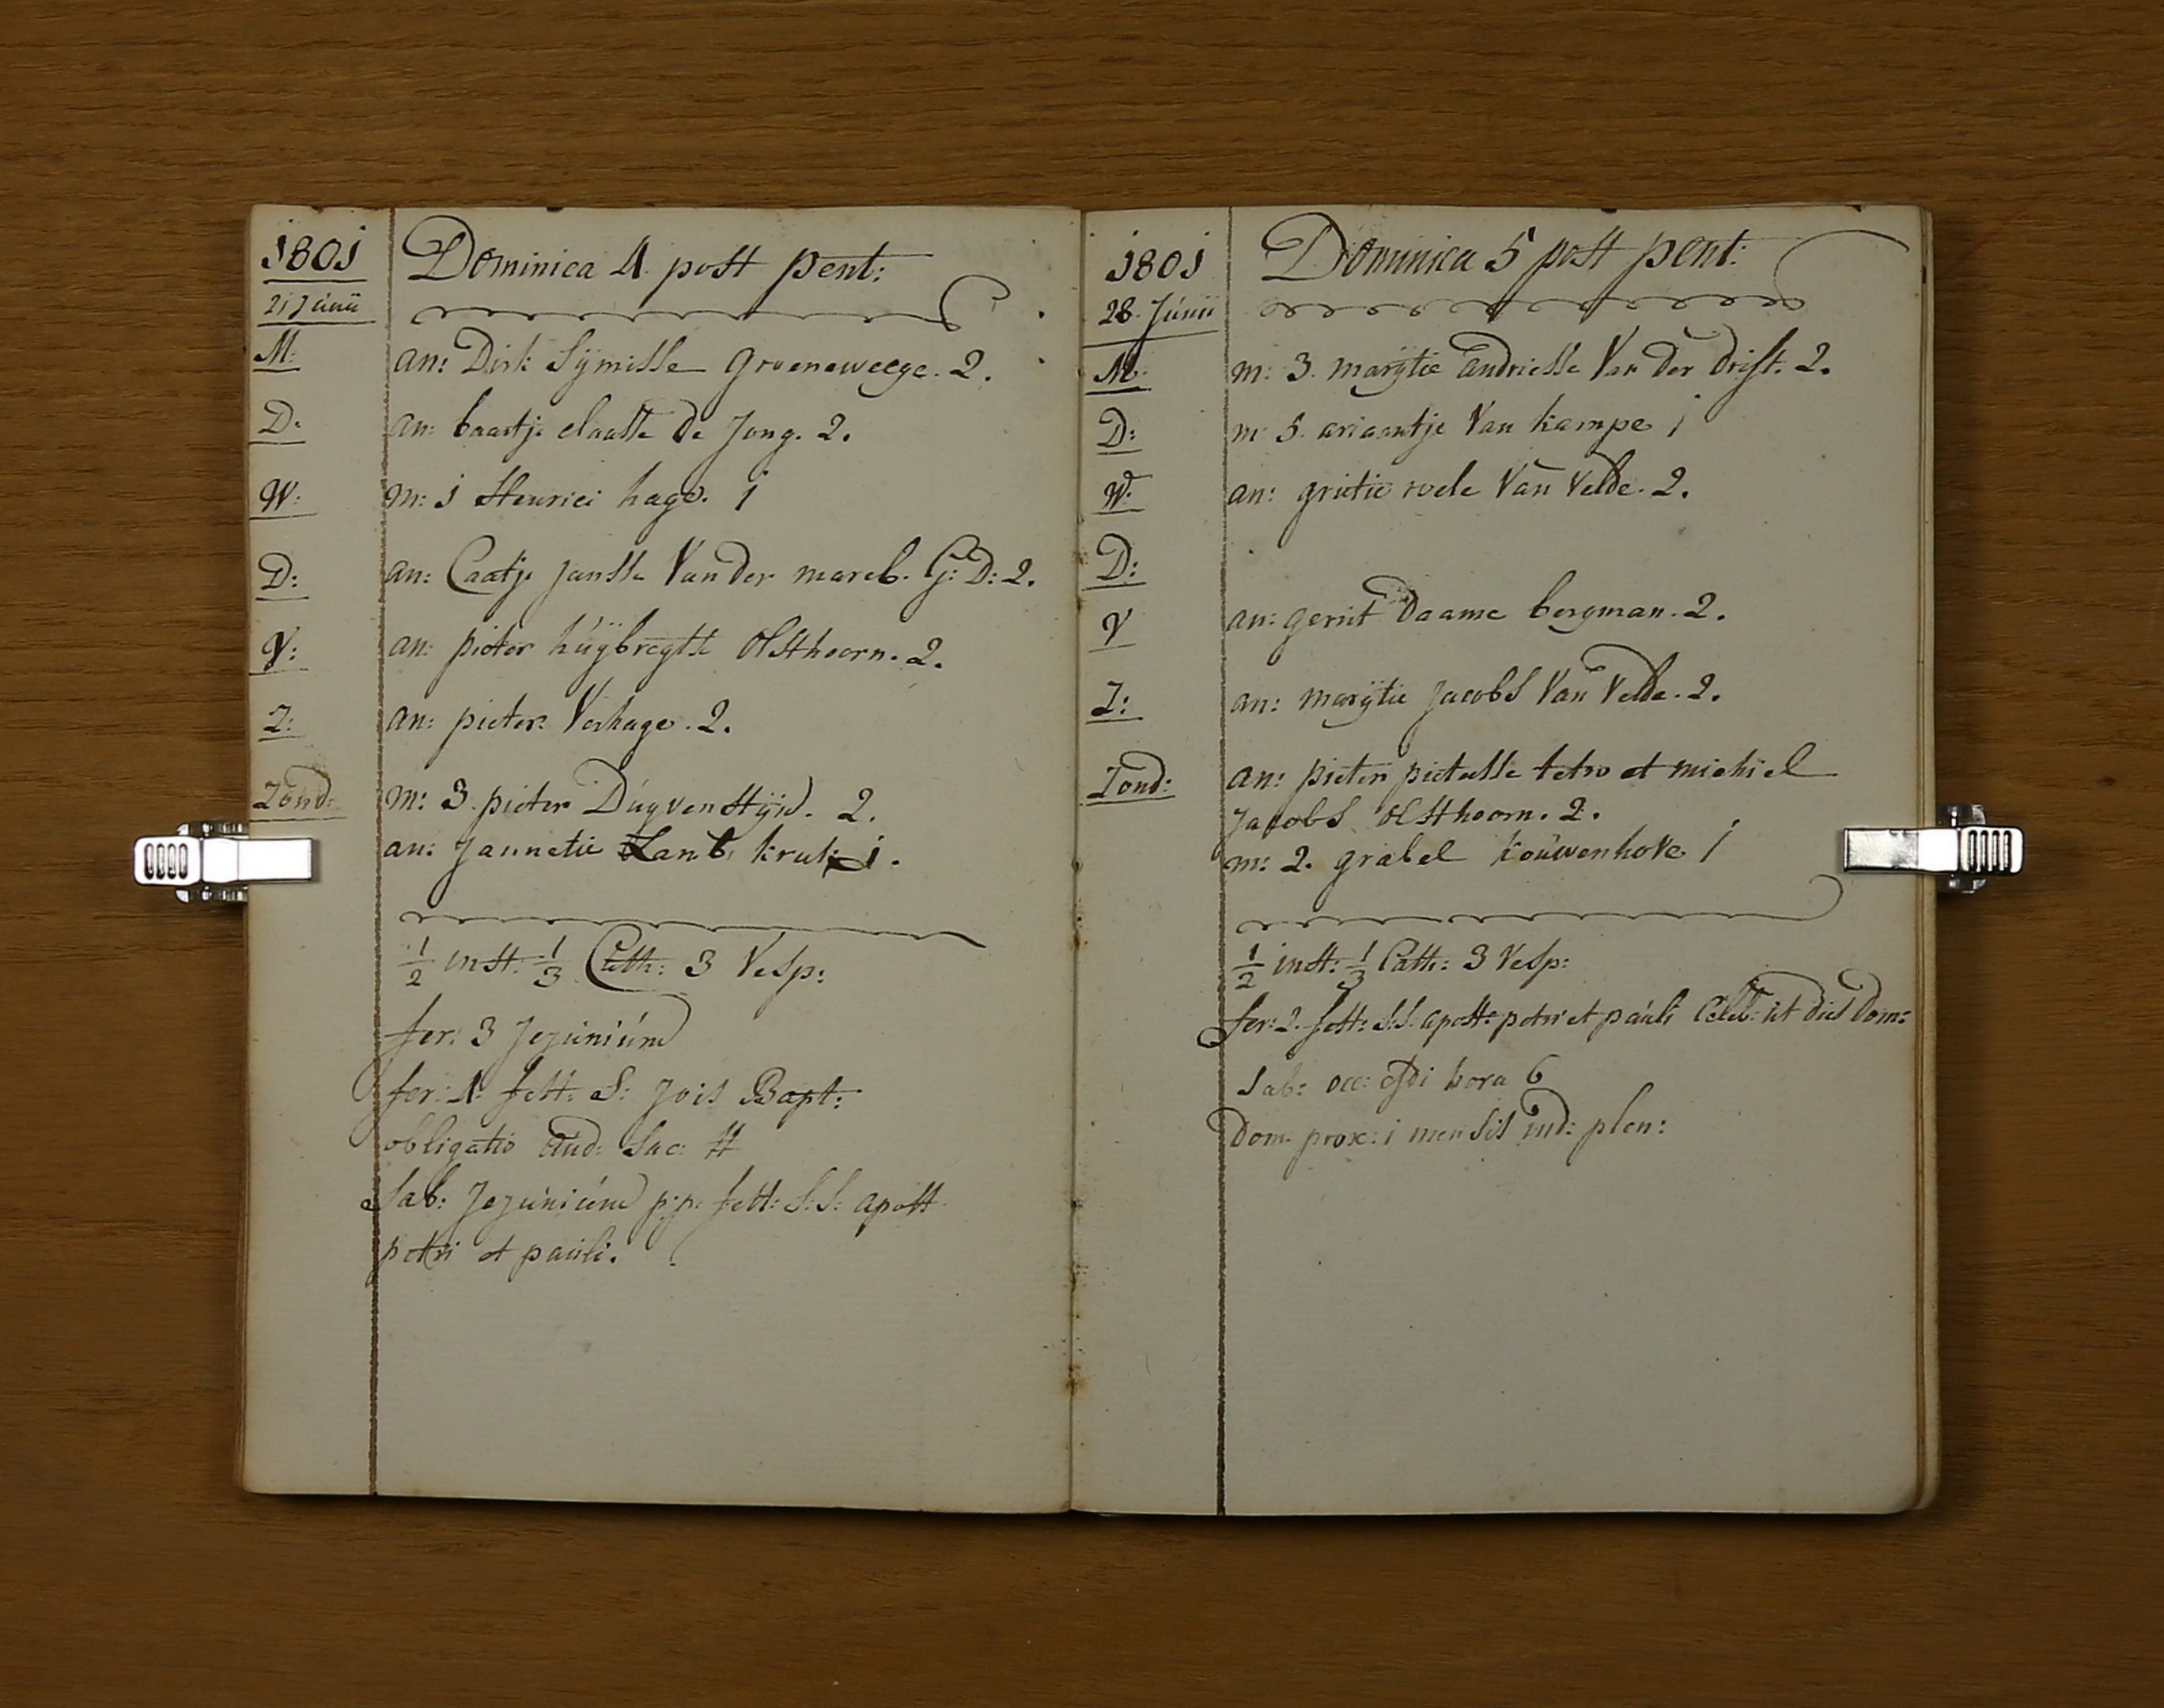 1801
Dominica 4 post pent:
21 Junii
M: an: Dirk Sÿmisse groeneweege. 2.
D. an: baartje claasse de Jong. 2.
W: m: 1 Henrici hage. 1
D: an: Caatje Jansse Van der marck. G: D: 2.
V: an: pieter húÿbregtse Olsthoorn. 2.
Z: an: pieter Verhage. 2.
Zond: m: 3. pieter Dúyvenstÿn. 2.
an: Jannetie Lamb: kruk 1.
1/2 inst: 1/3 Cath: 3 Vesp:
fer: 3 Jejúniúm
fer: 4 fest: S: Jois Bapt:
obligatio aud: Sac: #
Sab: Jejúniúm p:p: fest: S:S: apost
petri et paúli.
1801
Dominica 5 post pent:
28. Júnii
M: m: 3. marÿtie andriesse Van der drift. 2.
D: m: 5. ariaantje Van kampe 1
W: an: grietie roele Van Velde. 2.
D:
V an: gerrit Daame bergman. 2.
Z: an: marÿtie Jacobs Van Velde. 2.
Zond: an: pieter pietersse tetro et michiel
Jacobs olsthoorn. 2.
m: 2. grabel koúwenhove 1
1/2 inst: 1/3 Cath: 3 Vesp:
fer: 2. fest: S.S. apost: petri et paúli Celeb: ut dies Dom:
Sab: occ: hora 6
Dom prox: 1 mensis ind: plen: